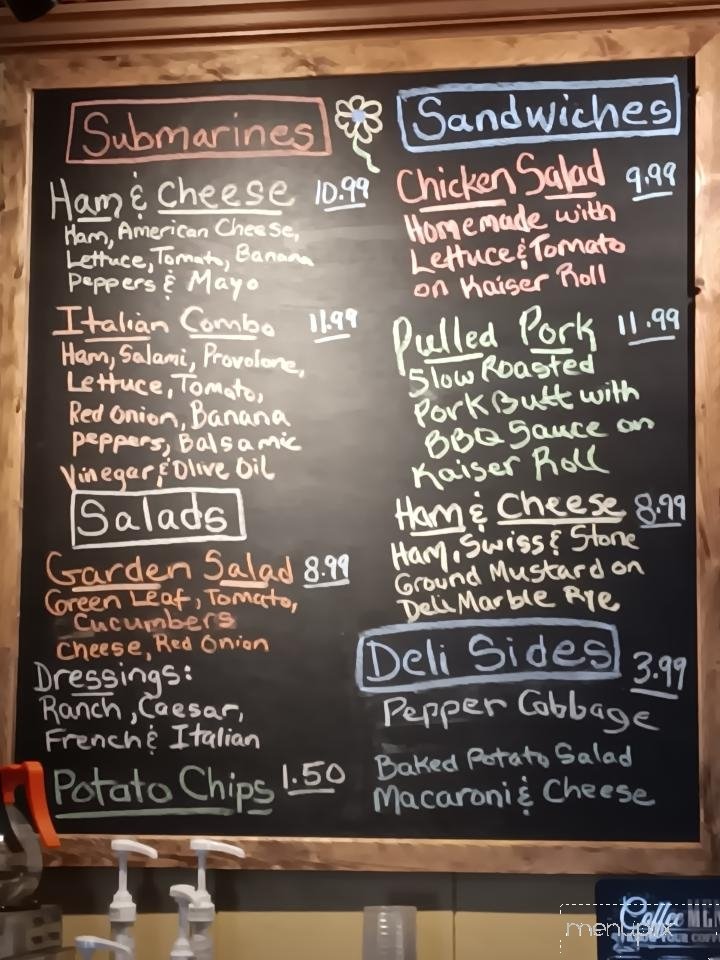 Submarines
Ham & Cheese 10.99
Ham, American Cheese,
Lettuce, Tomato, Banana
Peppers & Mayo
Italian Combo 11.99
Ham, Salami, Provolone,
Lettuce, Tomato,
Red Onion, Banana
Peppers, Balsamic
Vinegar & Olive Oil
Salads
Garden Salad 8.99
Green Leaf, Tomato,
Cucumbers
Cheese, Red Onion
Dressings:
Ranch, Caesar,
French & Italian
Potato Chips 1.50
Sandwiches
Chicken Salad 9.99
Homemade with
Lettuce & Tomato
on Kaiser Roll
Pulled Pork 11.99
Slow Roasted
Pork Butt with
BBQ Sauce on
Kaiser Roll
Ham & Cheese 8.99
Ham, Swiss & Stone
Ground Mustard on
Deli Marble Rye
Deli Sides 3.99
Pepper Cabbage
Baked Potato Salad
Macaroni & Cheese
Coffee
menupix